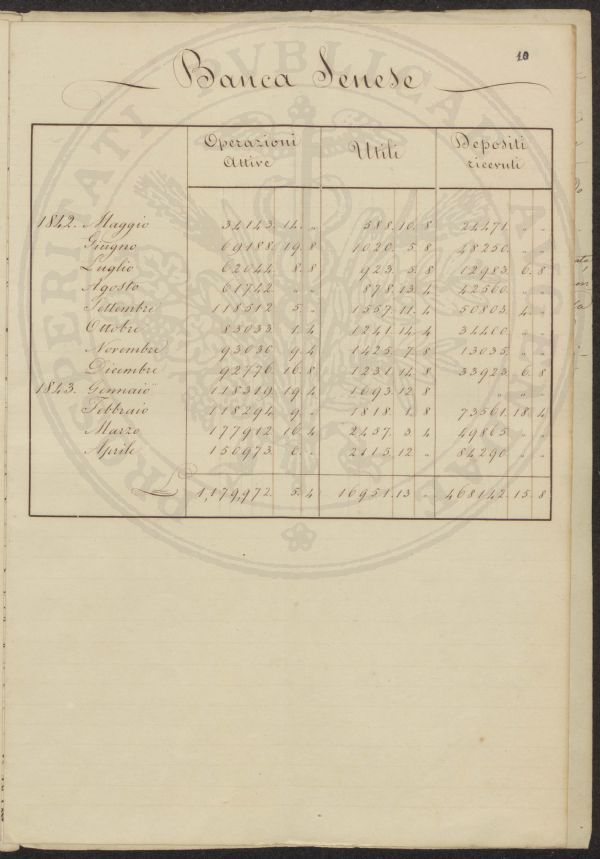 10
Banca Senese
Operazioni Attive Utili Depositi ricevuti
1842. Maggio 34143. 14. „ 588. 10. 8 24471. „ „
Giugno 69188. 19. 8 1020. 5. 8 48250. „ „
Luglio 62044. 8. 8 923. 5. 8 12983. 6. 8
Agosto 61742. „ „ 878. 13. 4 42560. „ „
Settembre 118512. 5. „ 1557. 11. 4 50803. 4. „
Ottobre 83033. 1. 4 1241. 14. 4 34400. „ „
Novembre 93030. 9. 4 1425. 7. 8 13035. „ „
Dicembre 92776. 16. 8 1231. 14. 8 33923. 6. 8
1843. Gennaio 118319. 19. 4 1693. 12. 8 „ „ „
Febbraio 118294. 9. „ 1818. 1. 8 73561. 18. 4
Marzo 177912. 16. 4 2457. 3. 4 49865. „ „
Aprile 150973. 6. „ 2115. 12. „ 84290. „ „
L 1,179,972. 5. 4 16951. 13. „ 468142. 15. 8